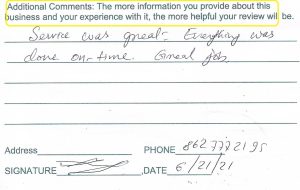 Additional Comments: The more information you provide about this
business and your experience with it, the more helpful your review will be.
Service was great - Everything was
done on-time. Great job
Address PHONE 862 777 2195
SIGNATURE ,DATE 6/21/21